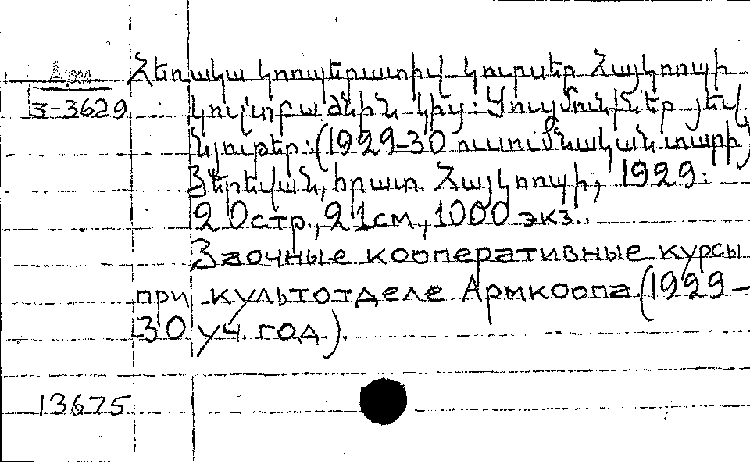 Հեռակա կոոպերատիվ կուրսեր Հայկոոպի
3-3629 կուլտբաժնին կից: Ցուցմունքներ յեվ
նյութեր: (1929-30 ուսումնական տարի)
Յերեվան, հրատ. Հայկոոպի, 1929.
20стр., 21см., 1000 экз.
Заочные кооперативные курсы
при культотделе Армкоопа (1929-
30 уч. год).
13675